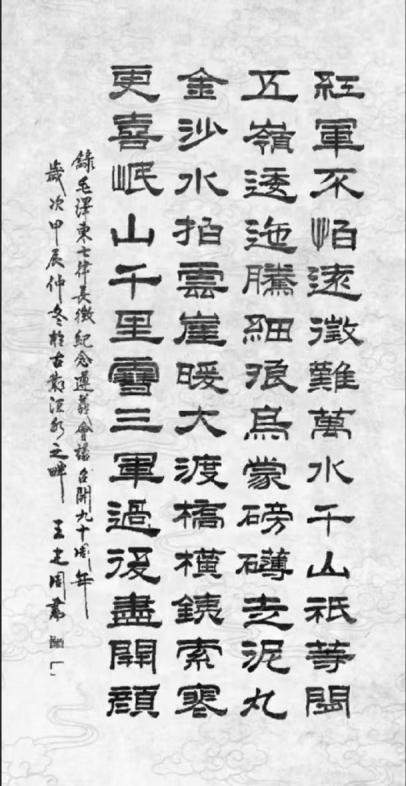 紅軍不怕遠徵難萬水千山祇等閒
五嶺逶迤騰細浪烏蒙磅礴走泥丸
金沙水拍雲崖暖大渡橋橫銕索寒
更喜岷山千里雪三軍過後盡開顏
錄毛澤東七律長徵紀念遵義會議召開九十周年
歲次甲辰仲冬於古之畔 王周書